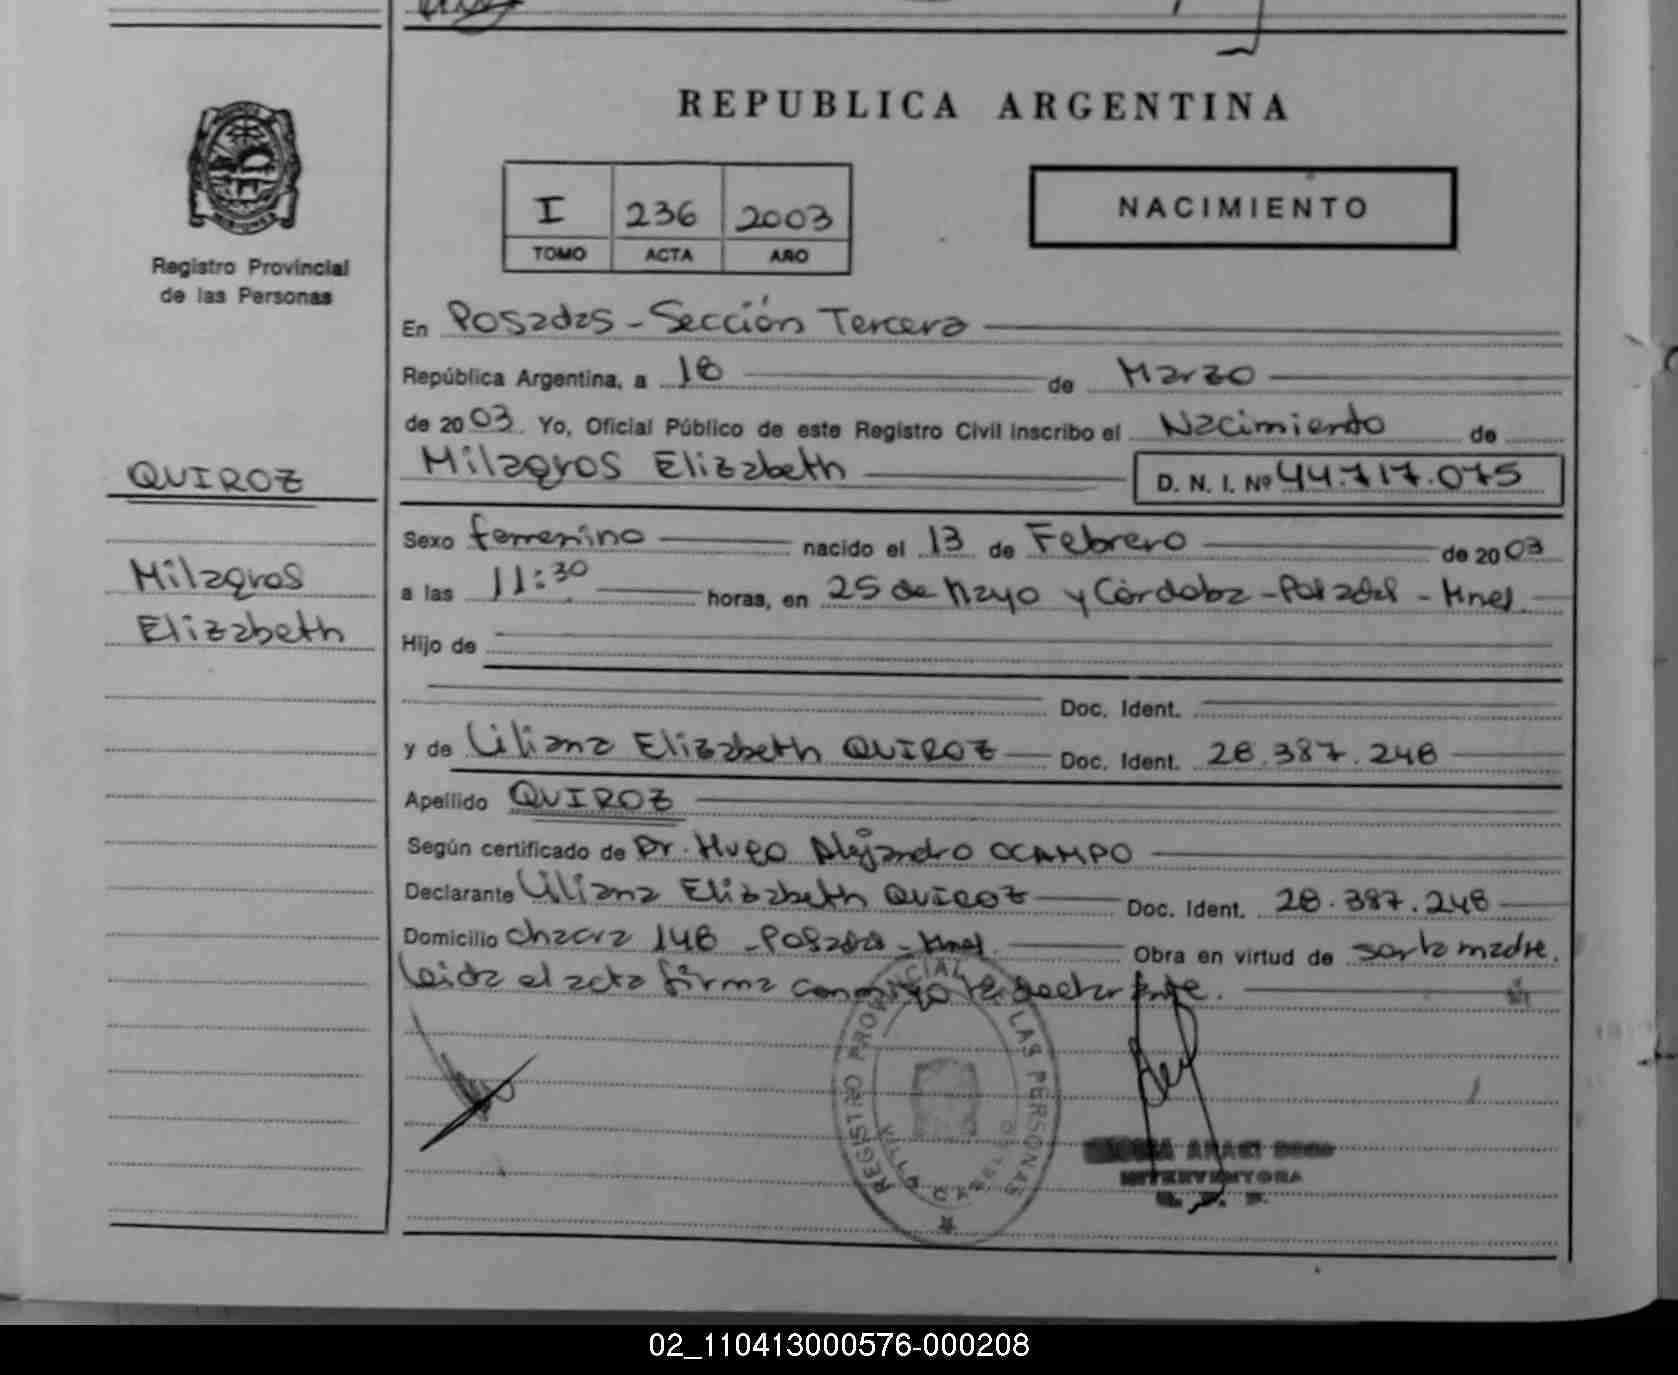 REPUBLICA ARGENTINA
I 236 2003
TOMO ACTA AÑO
NACIMIENTO
Registro Provincial
de las Personas
QUIROZ
Milagros
Elizabeth
En Posadas - Sección Tercera
República Argentina, a 18 de Marzo
de 2003. Yo, Oficial Público de este Registro Civil inscribo el Nacimiento de
Milagros Elizabeth D. N. I. Nº 44.717.075
Sexo femenino nacido el 13 de Febrero de 2003
a las 11:30 horas, en 25 de Mayo y Córdoba - Posadas - Mnes
Hijo de
Doc. Ident.
y de Liliana Elizabeth QUIROZ Doc. Ident. 28.387.248
Apellido QUIROZ
Según certificado de Dr. Hugo Alejandro OCAMPO
Declarante Liliana Elizabeth QUIROZ Doc. Ident. 28.387.248
Domicilio chacra 148 - Posadas - Mnes. Obra en virtud de ser la madre.
Leida el acta firma conmigo la declarante.
REGISTRO PROVINCIAL LAS PERSONAS
VILLA CABELLO
ARACI
INTERVENTORA
02_110413000576-000208